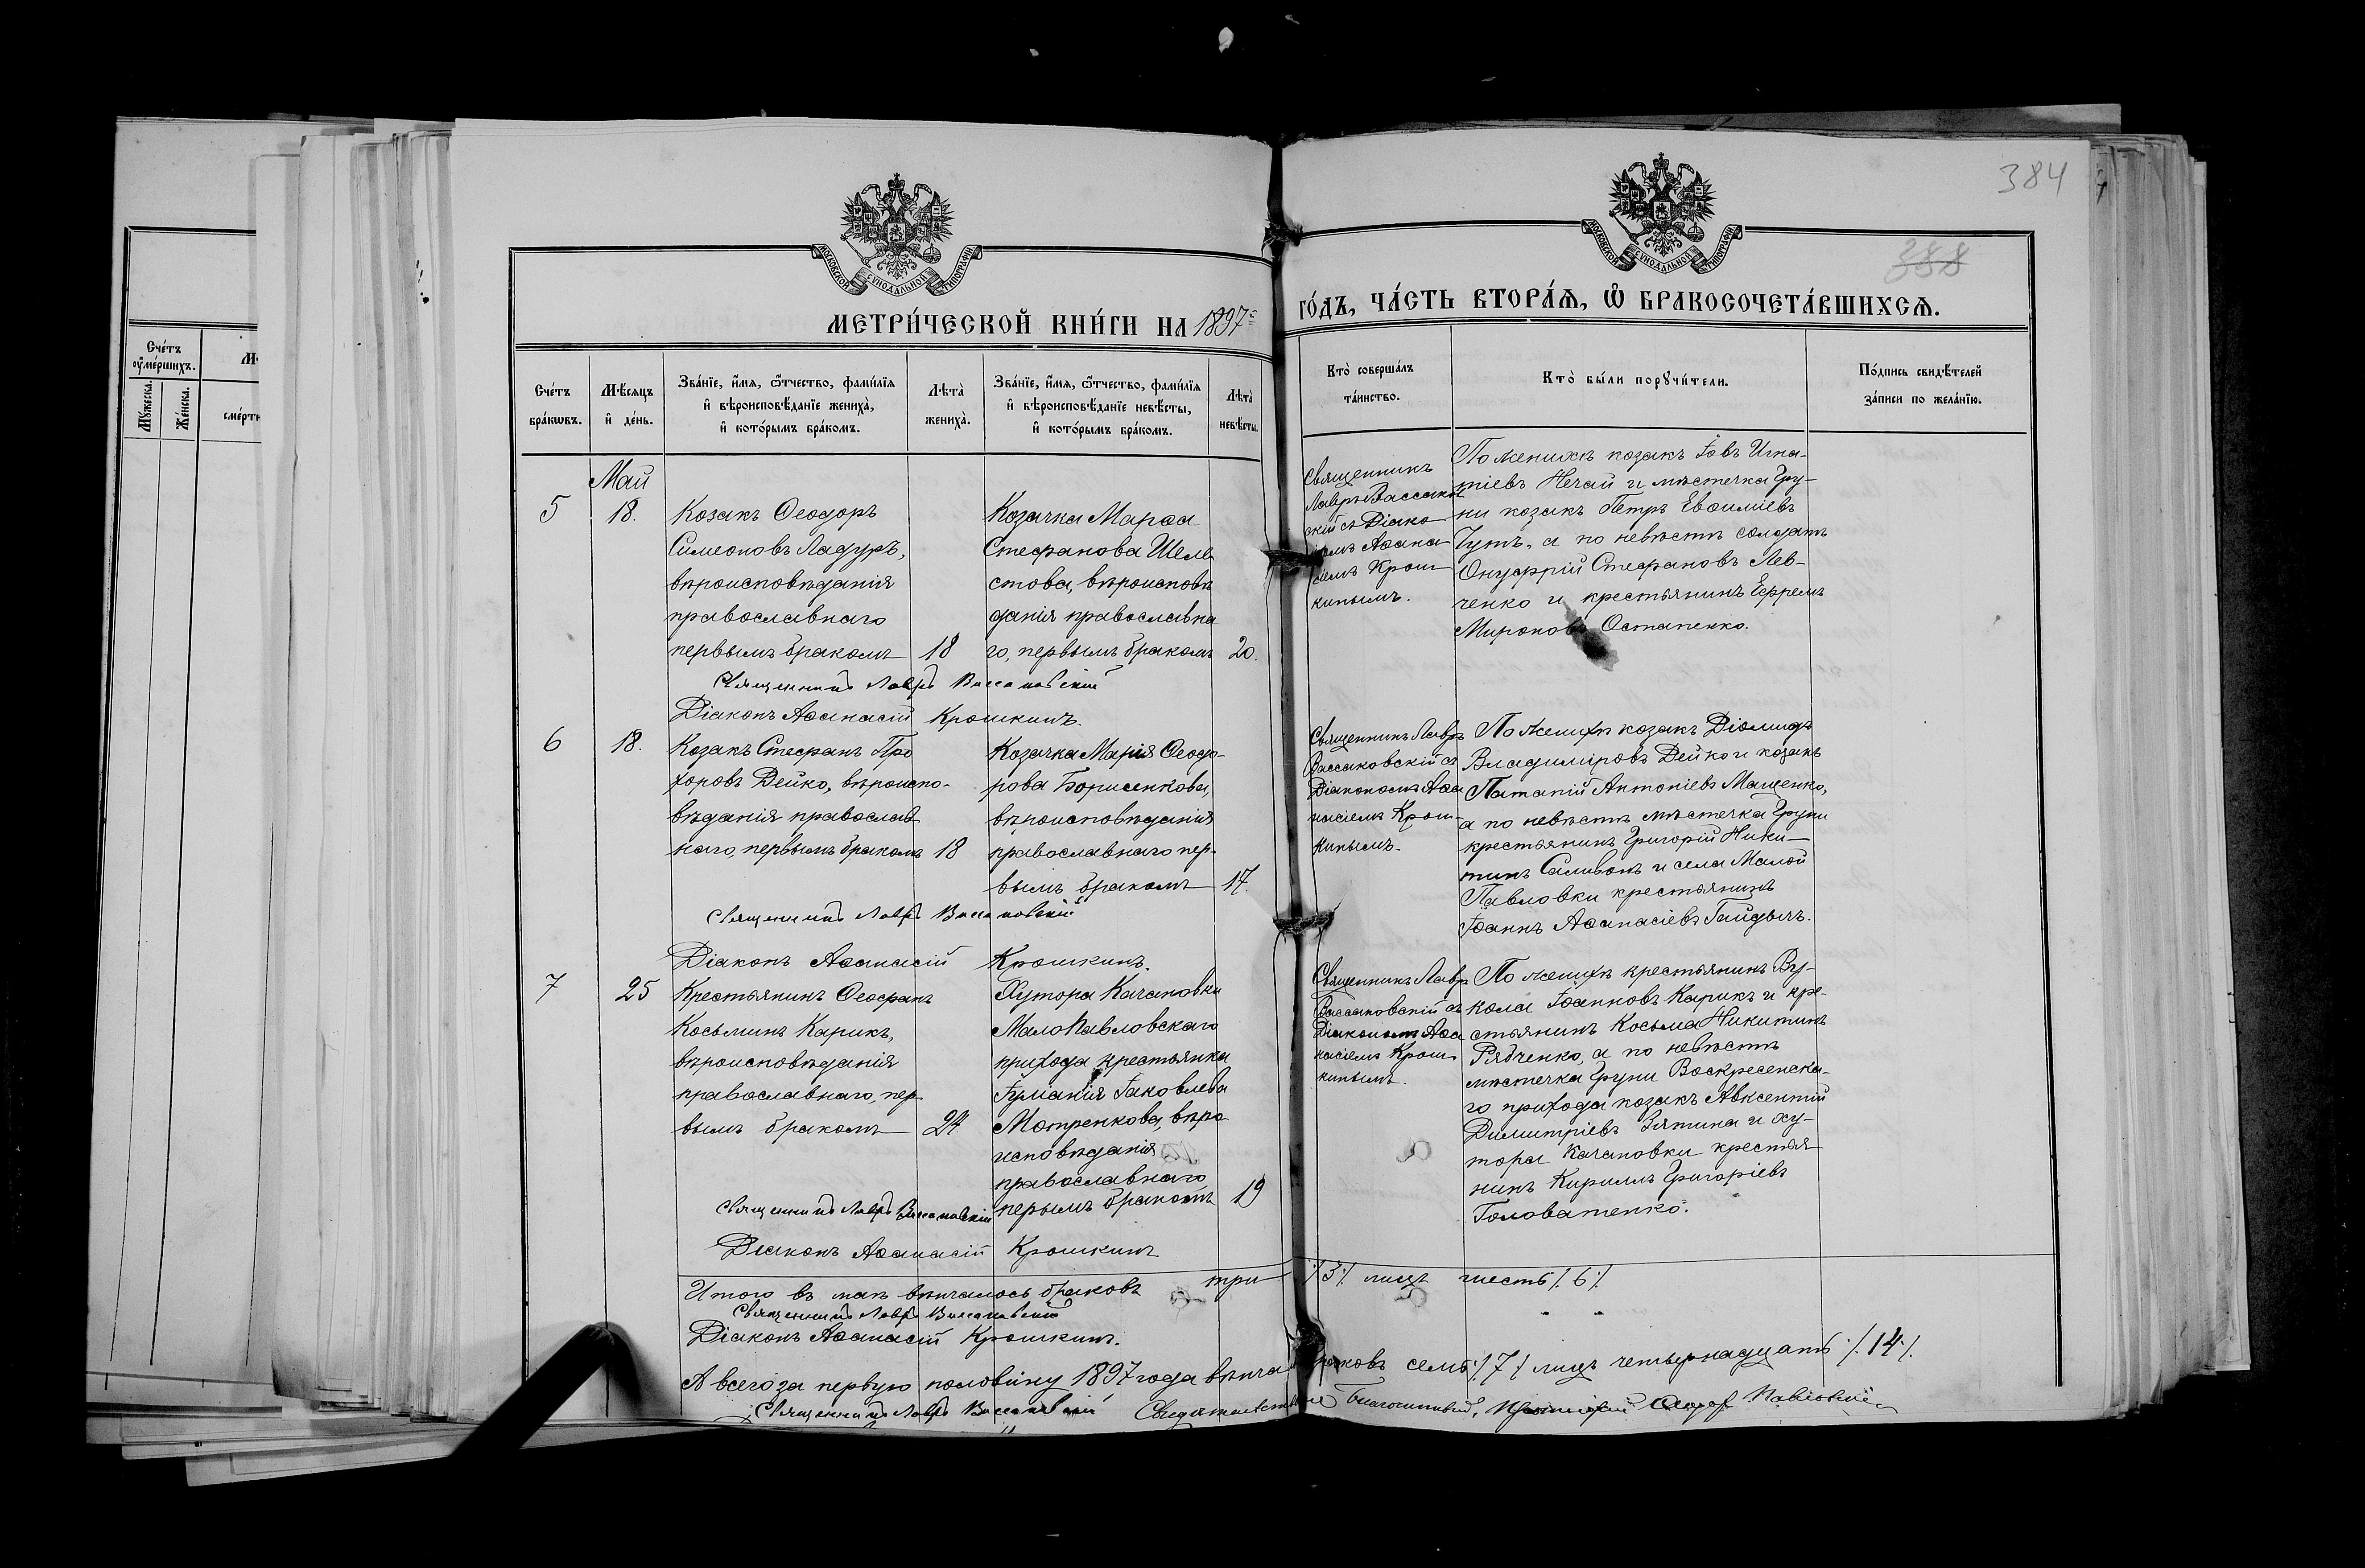 384
388
МОСКОВСКОЙ СѴНОДАЛЬНОЙ ТИПОГРАФІИ
МОСКОВСКОЙ СѴНОДАЛЬНОЙ ТИПОГРАФІИ
МЕТРИ́ЧЕСКОЙ КНИ́ГИ НА 1897 ГО́ДЪ, ЧА́СТЬ ВТОРА́Ѧ, Ѽ БРАКОСОЧЕТА́ВШИХСѦ.
Сче́тъ ᲂу҆ме́ршихъ.
Мꙋ́жеска.
Же́нска.
Сче́тъ бра́кѡвъ.
Мѣ́сѧцъ и҆ де́нь.
Зва́нїе, и҆́мѧ, ѻ҆́тчество, фами́лїѧ
и҆ вѣроисповѣ́данїе жениха̀,
и҆ кото́рымъ бра́комъ.
Лѣта̀ жениха̀.
Зва́нїе, и҆́мѧ, ѻ҆́тчество, фами́лїѧ
и҆ вѣроисповѣ́данїе невѣ́сты,
и҆ кото́рымъ бра́комъ.
Лѣта̀ невѣ́сты.
Кто̀ соверша́лъ та́инство.
Кто̀ бы́ли порꙋчи́тели.
По́дпись свидѣ́телей
за́писи по жела́нїю.
Май
5
18.
Козакъ Ѳеодоръ
Симеоновъ Ладуръ,
вѣроисповѣданія
православнаго
первымъ бракомъ
18
Козачка Марѳа
Стефанова Шеле
стова, вѣроисповѣ
данія православна
го, первымъ бракомъ
20.
Священникъ
Лавръ Вассаков
скій съ Діако
номъ Аѳана
сіемъ Крош
кинымъ.
По женихѣ козакъ Іовъ Игна-
тіевъ Нечай и мѣстечка Гру-
ни козакъ Петръ Евѳиміевъ
Гутъ, а по невѣстѣ солдатъ
Онуфрій Стефановъ Лев-
ченко и крестьянинъ Ефремъ
Мироновъ Остапенко.
Священникъ Лавръ Вассаковскій
Діаконъ Аѳанасій Крошкинъ.
6
18.
Козакъ Стефанъ Про
хоровъ Дейко, вѣроиспо-
вѣданія православ
наго, первымъ бракомъ
18
Козачка Марія Ѳеодо-
рова Борисенкова,
вѣроисповѣданія
православнаго пер-
вымъ бракомъ
17.
Священникъ Лавръ
Вассаковскій съ
Діакономъ Аѳа
насіемъ Крош-
кинымъ.
По женихѣ козакъ Діомидъ
Владиміровъ Дейко и козакъ
Патапій Антоніевъ Мащенко,
а по невѣстѣ мѣстечка Груни
крестьянинъ Григорій Ники-
тинъ Саливонъ и села Малой
Павловки крестьянинъ
Іоаннъ Аѳанасіевъ Гайдычъ.
Священникъ Лавръ Вассаковскій
Діаконъ Аѳанасій Крошкинъ.
7
25
Крестьянинъ Ѳеофанъ
Косьминъ Карикъ,
вѣроисповѣданія
православнаго, пер
вымъ бракомъ
24
Хутора Качановки
Мало Павловскаго
прихода крестьянка
Іуліанія Іаковлева
Мотренкова, вѣро
исповѣданія
православнаго
первымъ бракомъ
19
Священникъ Лавръ
Вассаковскій съ
Діакономъ Аѳа
насіемъ Крош
кинымъ.
По женихѣ крестьянинъ Ву-
кола Іоанновъ Карикъ и кре-
стьянинъ Косьма Никитинъ
Рябченко, а по невѣстѣ
мѣстечка Груни Воскресенска-
го прихода козакъ Авксентій
Димитріевъ Зятина и ху-
тора Качановки крестья
нинъ Кириллъ Григоріевъ
Головатенко.
Священникъ Лавръ Вассаковскій
Діаконъ Аѳанасій Крошкинъ
Итого въ маѣ вѣнчалось браковъ три ./3/. лицъ шесть ./6/.
Священникъ Лавръ Вассаковскій
Діаконъ Аѳанасій Крошкинъ.
А всего за первую половину 1897 года вѣнча браковъ семь ./7/. лицъ четырнадцать ./14/.
Священникъ Лавръ Вассаковскій
Благочинный,